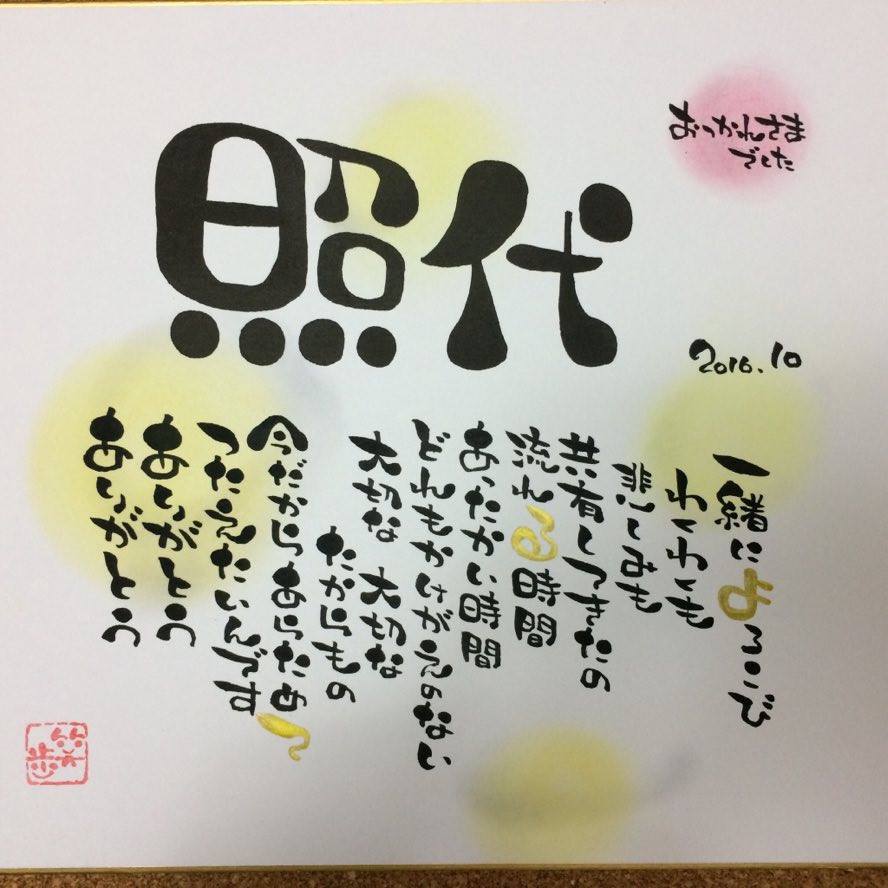 照代
おつかれさま
でした
2016.10
一緒によろこび
わくわくも
悲しみも
共有してきたの
流れる時間
あったかい時間
どれもかけがえのない
大切な 大切な
たからもの
今だからあらためて
つたえたいんです
ありがとう
ありがとう
笑歩